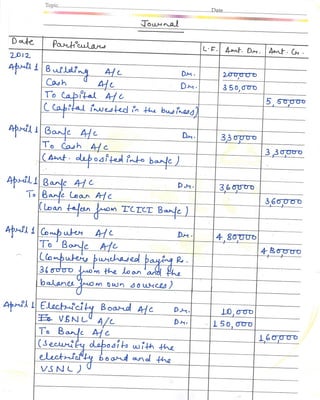 Topic Date
Journal
Date Particulars L.F. Amt. Dr. Amt. Cr.
2012
April 1 Building A/C Dr. 200,000
Cash A/C Dr. 350,000
To Capital A/C 5,50,000
(Capital invested in the business)
April 1 Bank A/C Dr. 330,000
To Cash A/C 3,30,000
(Amt. deposited into bank)
April 1 Bank A/C Dr. 360000
To Bank Loan A/C 360,000
(Loan taken from ICICI Bank)
April 1 Computer A/C Dr. 4,80,000
To Bank A/C 480,000
(Computers purchased paying Rs.
360000 from the loan and the
balance from own sources)
April 1 Electricity Board A/C Dr. 10,000
To VSNL A/C Dr. 150,000
To Bank A/C 1,60,000
(Security deposits with the
electricity board and the
VSNL)